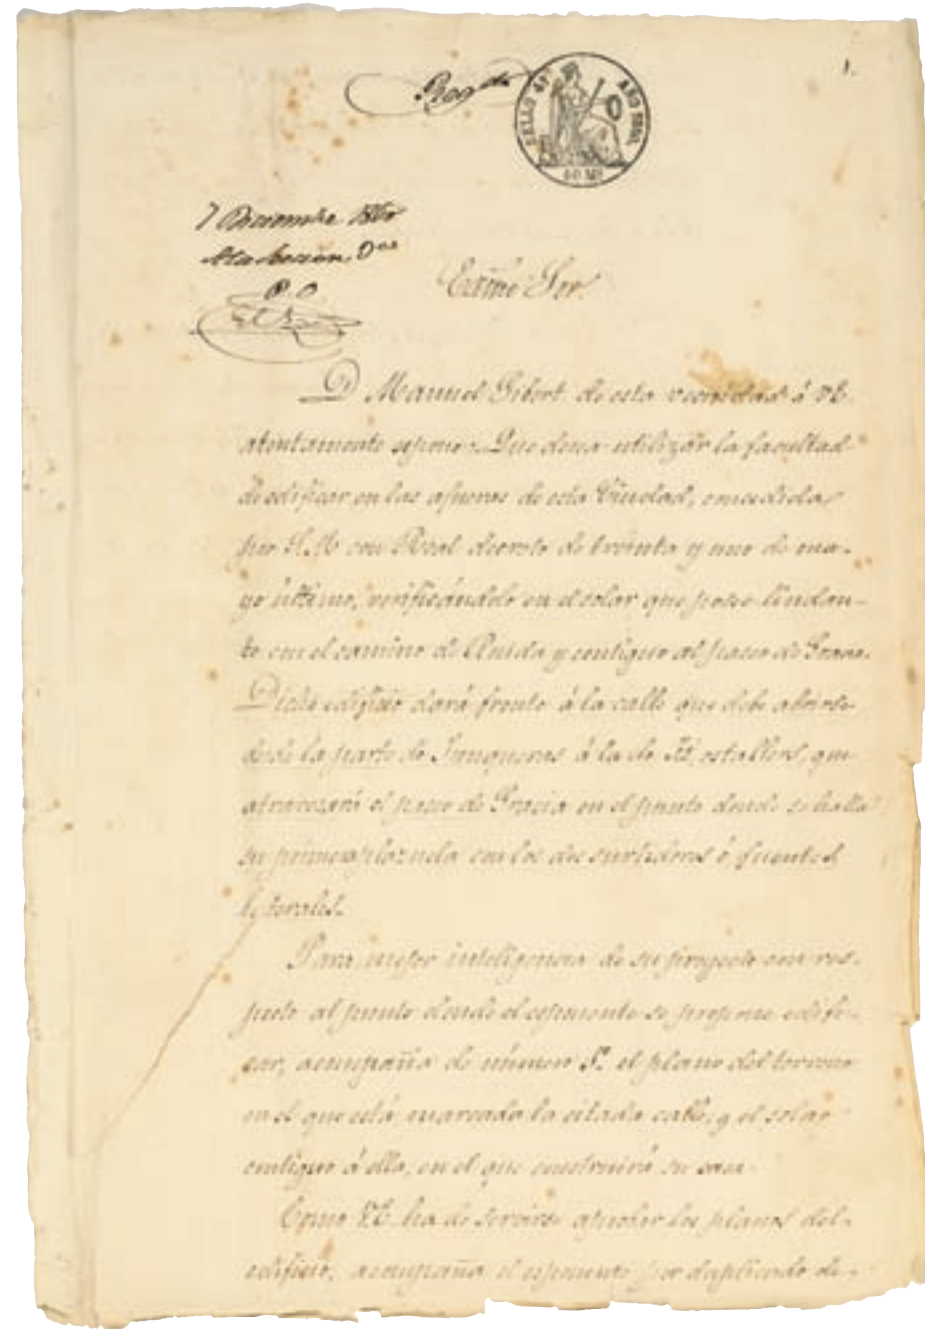 1.
SELLO 4º AÑO 1860
7 Diciembre 1860
Excmo Sor.
D Manuel Gibert de esta vecindad á VE.
atentamente espone: Que desea utilizar la facultad
de edificar en las afueras de esta Ciudad, concedida
por S.M. con Real decreto de treinta y uno de ma-
yo último, verificándolo en el solar que posee lindan-
te con el camino de Ronda y contiguo al paseo de Gracia.
Dicho edificio dará frente á la calle que debe abrirse
desde la parte de Junqueras á la de Tallers, que
atravezará el paseo de Gracia en el punto donde se halla
su primera plazuela con los dos surtidores ó fuentes
laterales.
Para mejor inteligencia de su proyecto con res-
pecto al punto donde el esponente se propone edifi-
car, acompaña de número 1º el plano del terreno
en el que está marcada la citada calle, y el solar
contiguo á ella, en el que construirá su casa.
Como VE. ha de servirse aprobar los planos del
edificio, acompaña el esponente por duplicado de-